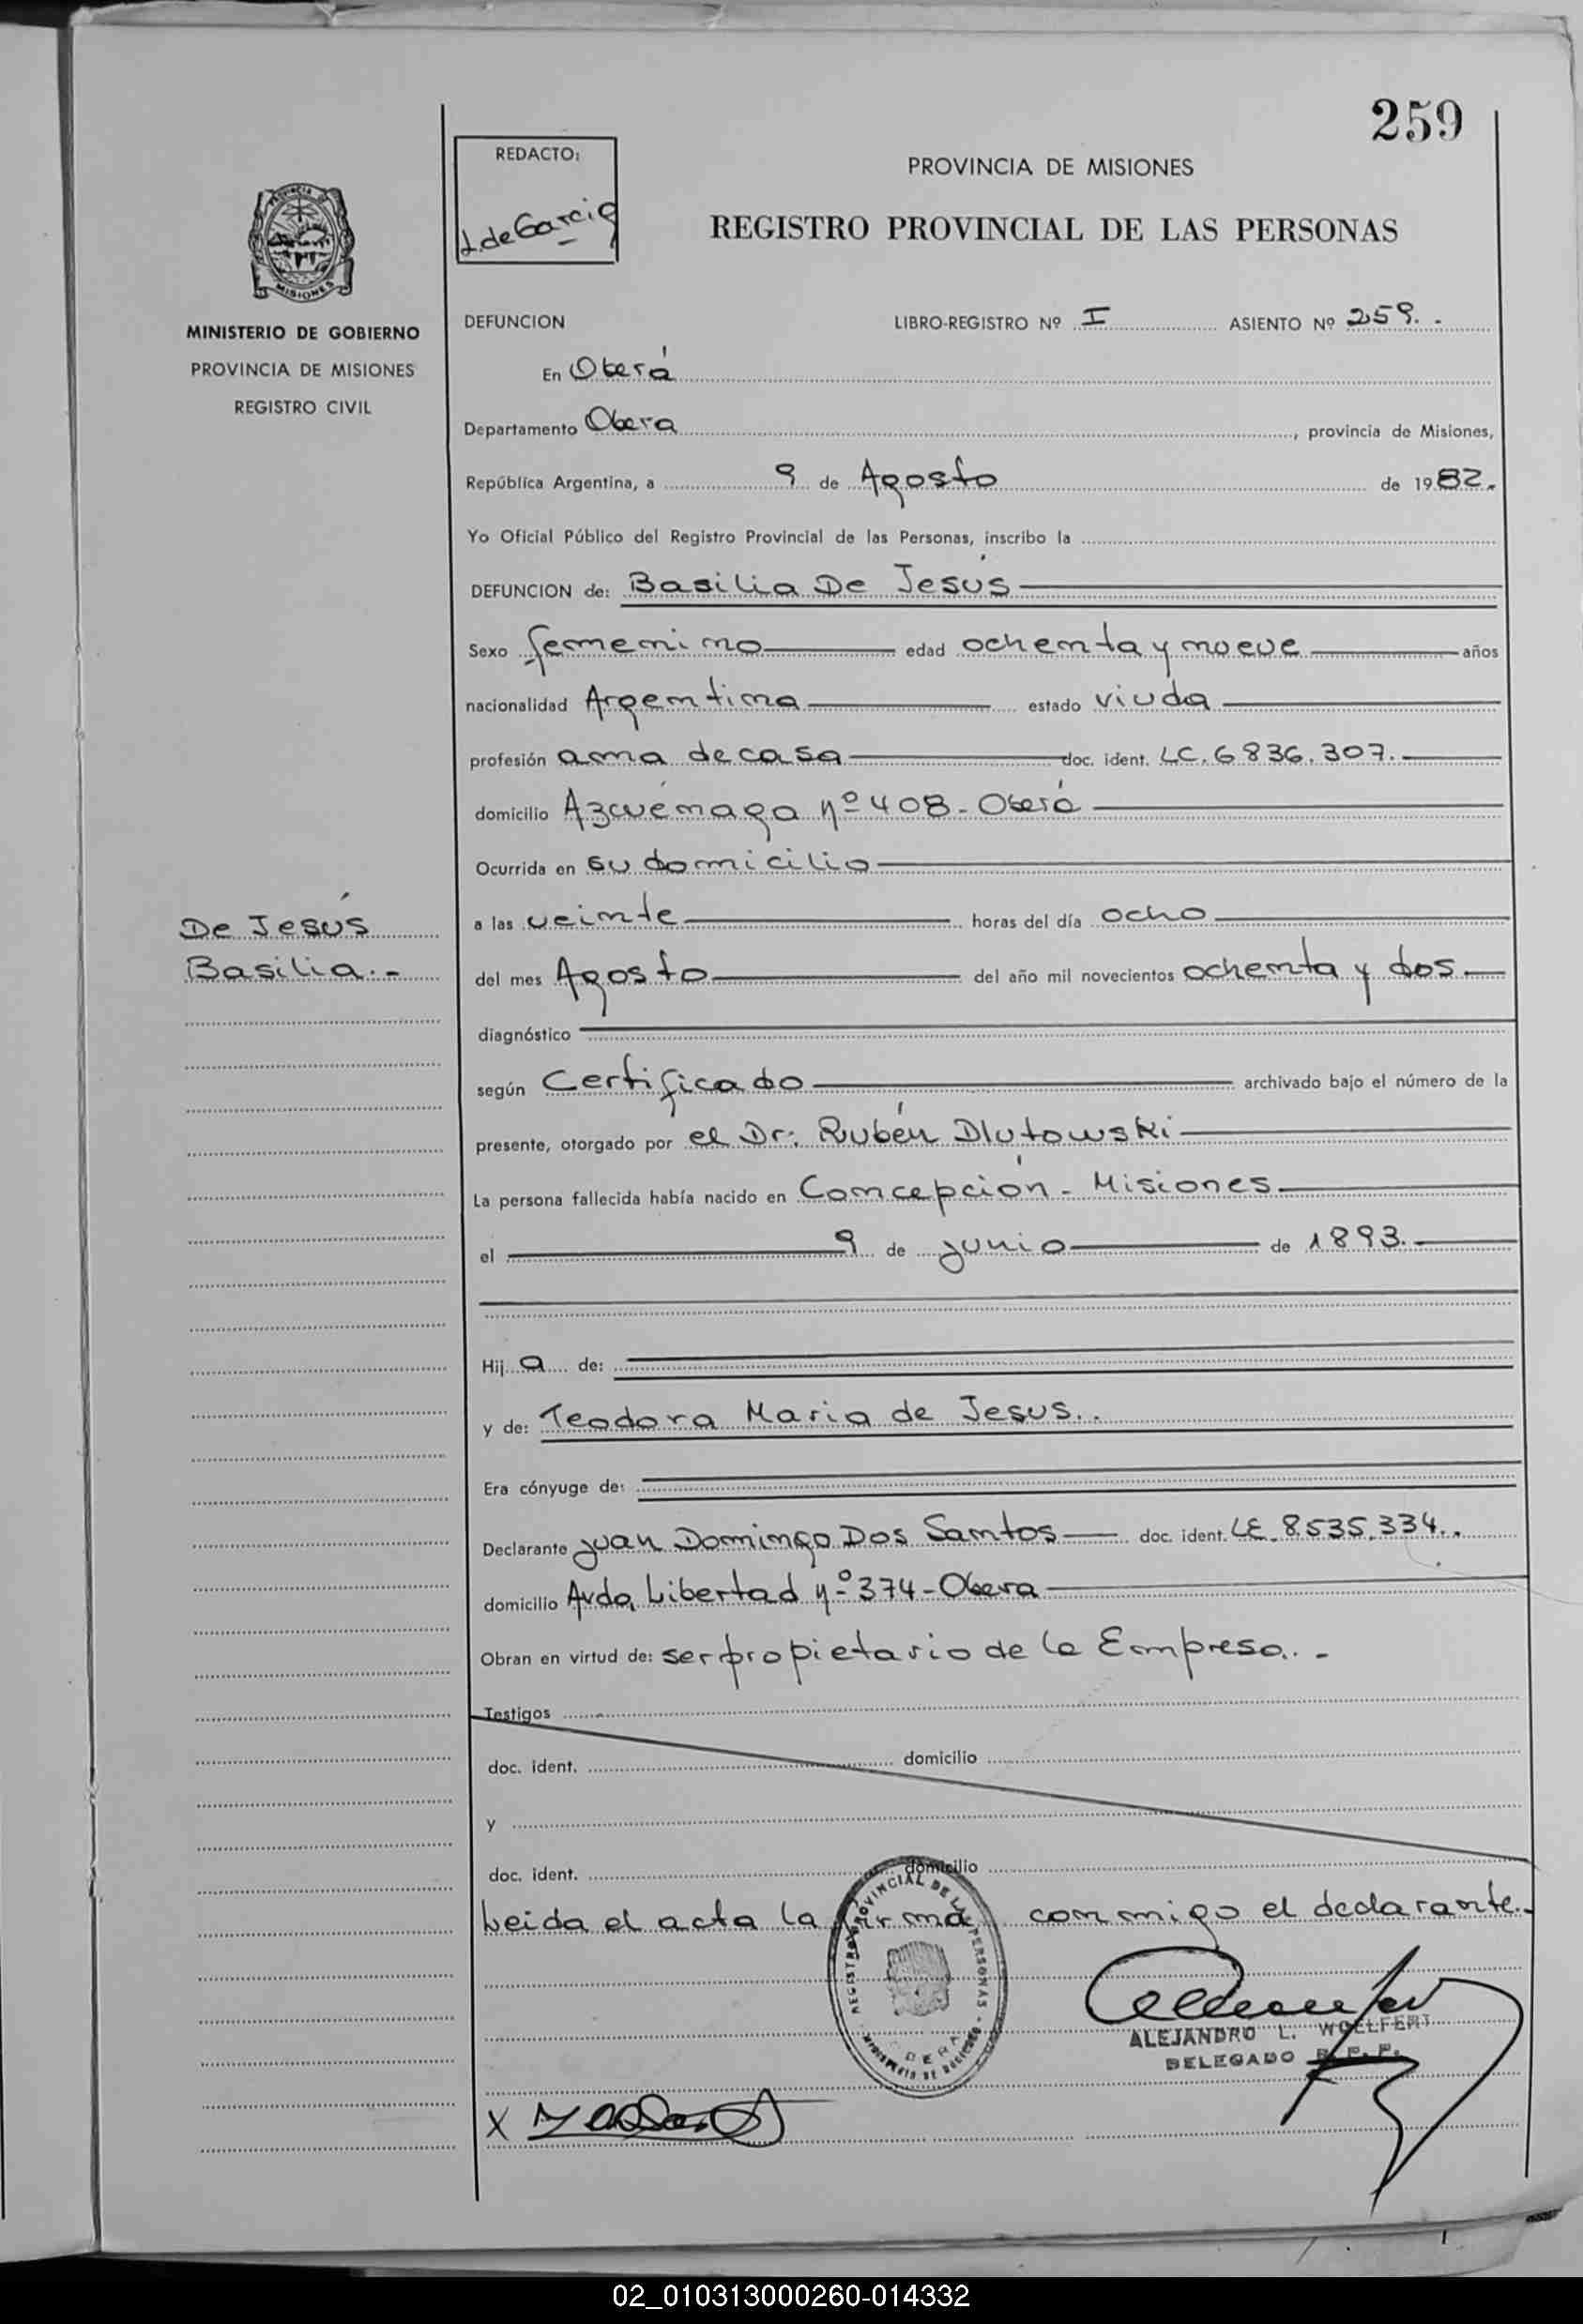 259
REDACTO:
L. de Garcia
PROVINCIA DE MISIONES
REGISTRO PROVINCIAL DE LAS PERSONAS
PROVINCIA DE
MISIONES
MINISTERIO DE GOBIERNO
PROVINCIA DE MISIONES
REGISTRO CIVIL
DEFUNCION LIBRO-REGISTRO Nº I ASIENTO Nº 259.-
En Oberá
Departamento Obera, provincia de Misiones,
República Argentina, a 9 de Agosto de 1982.
Yo Oficial Público del Registro Provincial de las Personas, inscribo la
DEFUNCION de: Basilia De Jesús
Sexo femenino edad ochenta y nueve años
nacionalidad Argentina estado viuda
profesión ama de casa doc. ident. LC. 6836.307.
domicilio Azcuénaga nº 408 - Oberá
Ocurrida en su domicilio
De Jesús
Basilia.-
a las veinte horas del día ocho
del mes Agosto del año mil novecientos ochenta y dos
diagnóstico
según Certificado archivado bajo el número de la
presente, otorgado por el Dr: Rubén Dlutowski
La persona fallecida había nacido en Concepción - Misiones
el 9 de junio de 1893.
Hij a de:
y de: Teodora Maria de Jesus..
Era cónyuge de:
Declarante Juan Domingo Dos Santos doc. ident. LE. 8.535.334..
domicilio Avda, Libertad nº 374 - Obera
Obran en virtud de: ser propietario de la Empresa..-
Testigos
doc. ident. domicilio
y
doc. ident. domicilio
Leida el acta la firma conmigo el declarante.-
REGISTRO PROVINCIAL DE LAS PERSONAS
MINISTERIO DE GOBIERNO
OBERA
ALEJANDRO L. WOLLFERT
DELEGADO R. P. P.
X
02_010313000260-014332